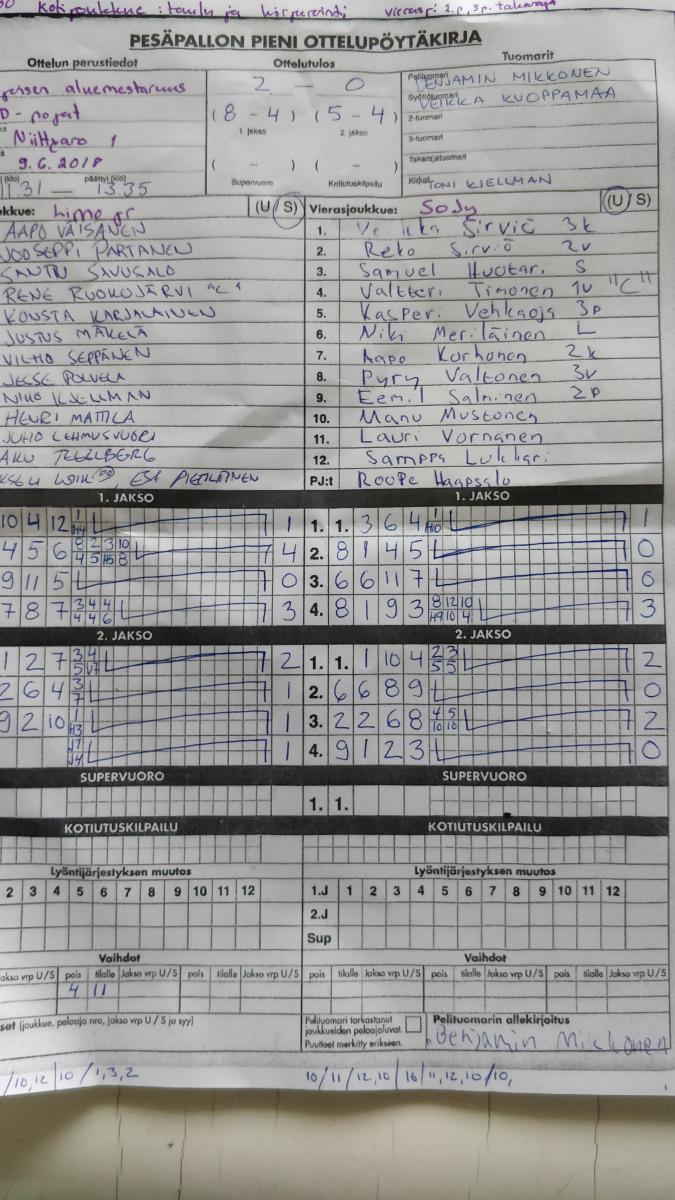 Kotijoukkue : taulu ja vierasp: 2.p, 3p. takaraja
PESÄPALLON PIENI OTTELUPÖYTÄKIRJA
Ottelun perustiedot
Ottelutulos
Tuomarit
aluemestaruus
2 - 0
Pelituomari BENJAMIN MIKKONEN
Syöttötuomari VEIKKA KUOPPAMAA
D - pojat
(8 - 4) (5 - 4)
2-tuomari
1. jakso 2. jakso
Niittyaro 1
3-tuomari
9.6.2018
( - ) ( - )
Takarajatuomari
(klo) päättyi (klo)
11.31 — 13.35
Supervuoro Kotiutuskilpailu
Kirjuri TONI KJELLMAN
kkue: Limo jr (U/S) Vierasjoukkue: SoJy (U/S)
AAPO VÄISÄNEN 1. Veikka Sirviö 3k
JOOSEPPI PARTANEN 2. Reko Sirviö 2v
SANTTU SAVUSALO 3. Samuel Huotari S
RENE RUOKOJÄRVI "C" 4. Valtteri Timonen 1v "C"
KONSTA KARJALAINEN 5. Kasperi Vehkaoja 3p
JUSTUS MÄKELÄ 6. Niki Meriläinen L
VILHO SEPPÄNEN 7. Aapo Korhonen 2k
JESSE POLVELA 8. Pyry Valtonen 3v
NIILO KJELLMAN 9. Eemil Salminen 2p
HENRI MATTILA 10. Manu Mustonen
JUHO LEHMUSVUORI 11. Lauri Vornanen
AKU TEELBERG 12. Samppa Lukkari
ESA PIETILÄINEN PJ:t Roope Haapsalo
1. JAKSO 1. JAKSO
10 4 12 1 H4 1 1. 1. 3 6 4 1 H10 1
4 5 6 8 2 3 10 4 5 H5 8 4 2. 8 1 4 5 0
9 11 5 0 3. 6 6 11 7 0
7 8 7 3 4 4 4 4 6 3 4. 8 1 9 3 8 12 10 H9 10 4 3
2. JAKSO 2. JAKSO
1 2 7 3 4 5 V7 2 1. 1. 1 10 4 2 3 5 5 2
2 6 4 3 7 1 2. 6 6 8 9 0
9 2 10 1 H3 1 3. 2 2 6 8 4 5 10 10 2
1 4. 9 1 2 3 0
SUPERVUORO SUPERVUORO
1. 1.
KOTIUTUSKILPAILU KOTIUTUSKILPAILU
Lyöntijärjestyksen muutos Lyöntijärjestyksen muutos
2 3 4 5 6 7 8 9 10 11 12 1.J 1 2 3 4 5 6 7 8 9 10 11 12
2.J
Sup
Vaihdot Vaihdot
Jakso vrp U/S pois tilalle Jakso vrp U/S pois tilalle Jakso vrp U/S pois tilalle Jakso vrp U/S pois tilalle Jakso vrp U/S
4 11
set (joukkue, pelaaja nro, jakso vrp U/S ja syy)
Pelituomari tarkastanut
joukkueiden pelaajaluvat.
Puutteet merkitty erikseen.
Pelituomarin allekirjoitus
Benjamin Mikkonen
/10,12/10/1,3,2 10/11/12,10/16/11,12,10/10,